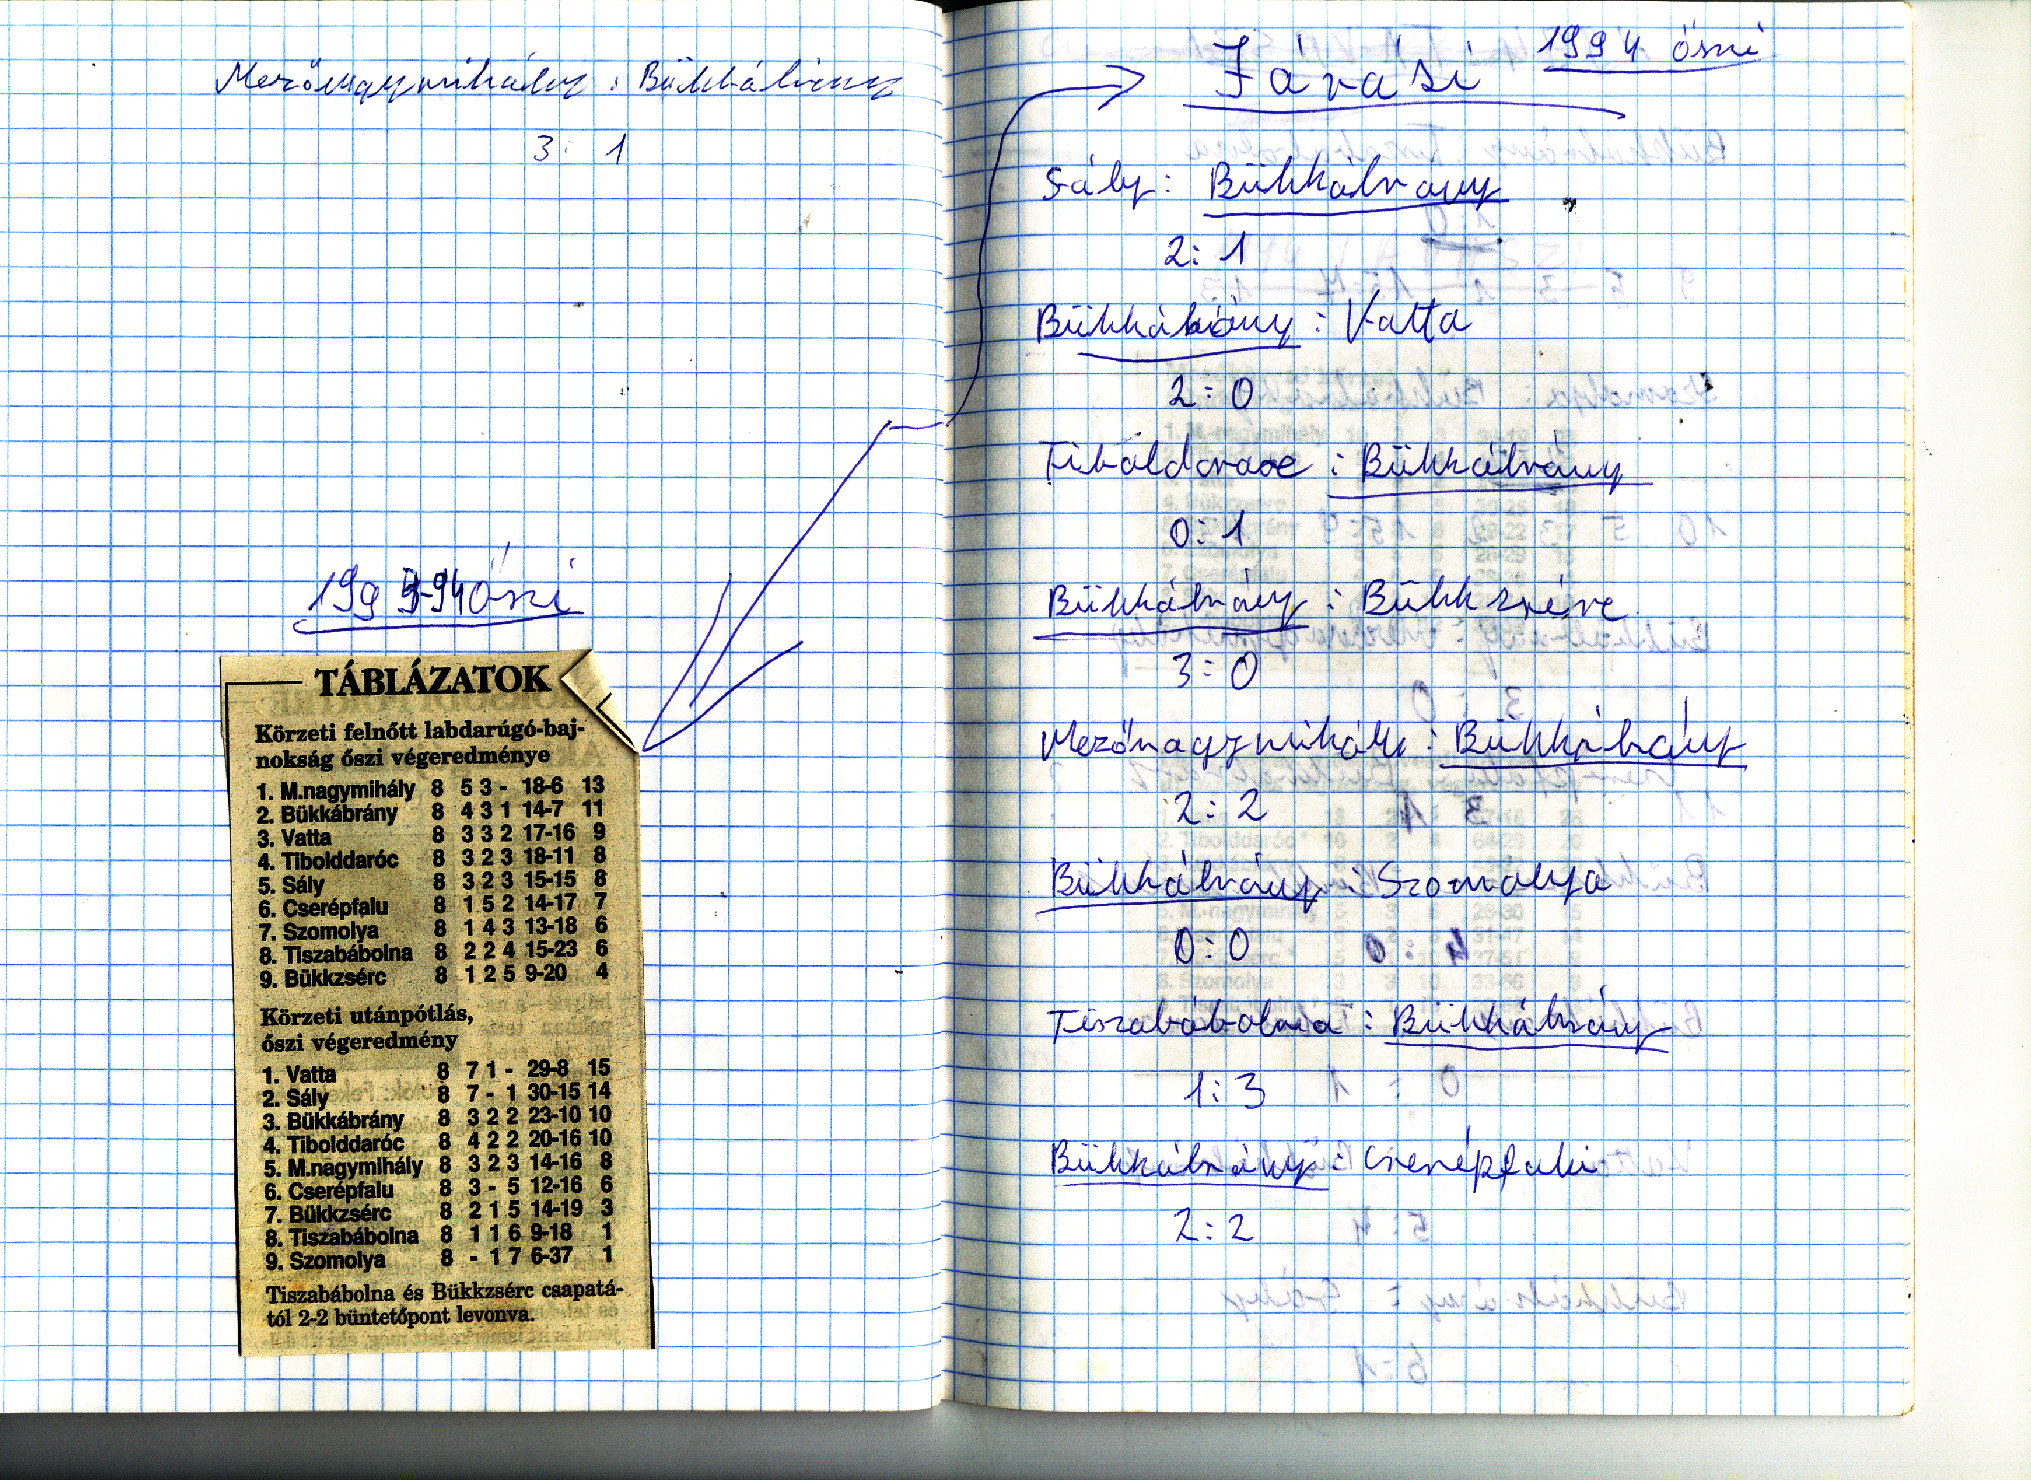 Mezőnagymihály : Bükkábrány
3 : 1
1993-94 őszi
TÁBLÁZATOK
Körzeti felnőtt labdarúgó-baj-
nokság őszi végeredménye
1. M.nagymihály 8 5 3 - 18-6 13
2. Bükkábrány 8 4 3 1 14-7 11
3. Vatta 8 3 3 2 17-16 9
4. Tibolddaróc 8 3 2 3 18-11 8
5. Sály 8 3 2 3 15-15 8
6. Cserépfalu 8 1 5 2 14-17 7
7. Szomolya 8 1 4 3 13-18 6
8. Tiszabábolna 8 2 2 4 15-23 6
9. Bükkzsérc 8 1 2 5 9-20 4
Körzeti utánpótlás,
őszi végeredmény
1. Vatta 8 7 1 - 29-8 15
2. Sály 8 7 - 1 30-15 14
3. Bükkábrány 8 3 2 2 23-10 10
4. Tibolddaróc 8 4 2 2 20-16 10
5. M.nagymihály 8 3 2 3 14-16 8
6. Cserépfalu 8 3 - 5 12-16 6
7. Bükkzsérc 8 2 1 5 14-19 3
8. Tiszabábolna 8 1 1 6 9-18 1
9. Szomolya 8 - 1 7 6-37 1
Tiszabábolna és Bükkzsérc csapatá-
tól 2-2 büntetőpont levonva.
Járási 1994 őszi
Sály : Bükkábrány
2 : 1
Bükkábrány : Vatta
2 : 0
Tibolddaroc : Bükkábrány
0 : 1
Bükkábrány : Bükkzsérc
3 : 0
Mezőnagymihály : Bükkábrány
2 : 2
Bükkábrány : Szomolya
0 : 0
Tiszabábolna : Bükkábrány
1 : 3
Bükkábrány : Cserépfalu
2 : 2